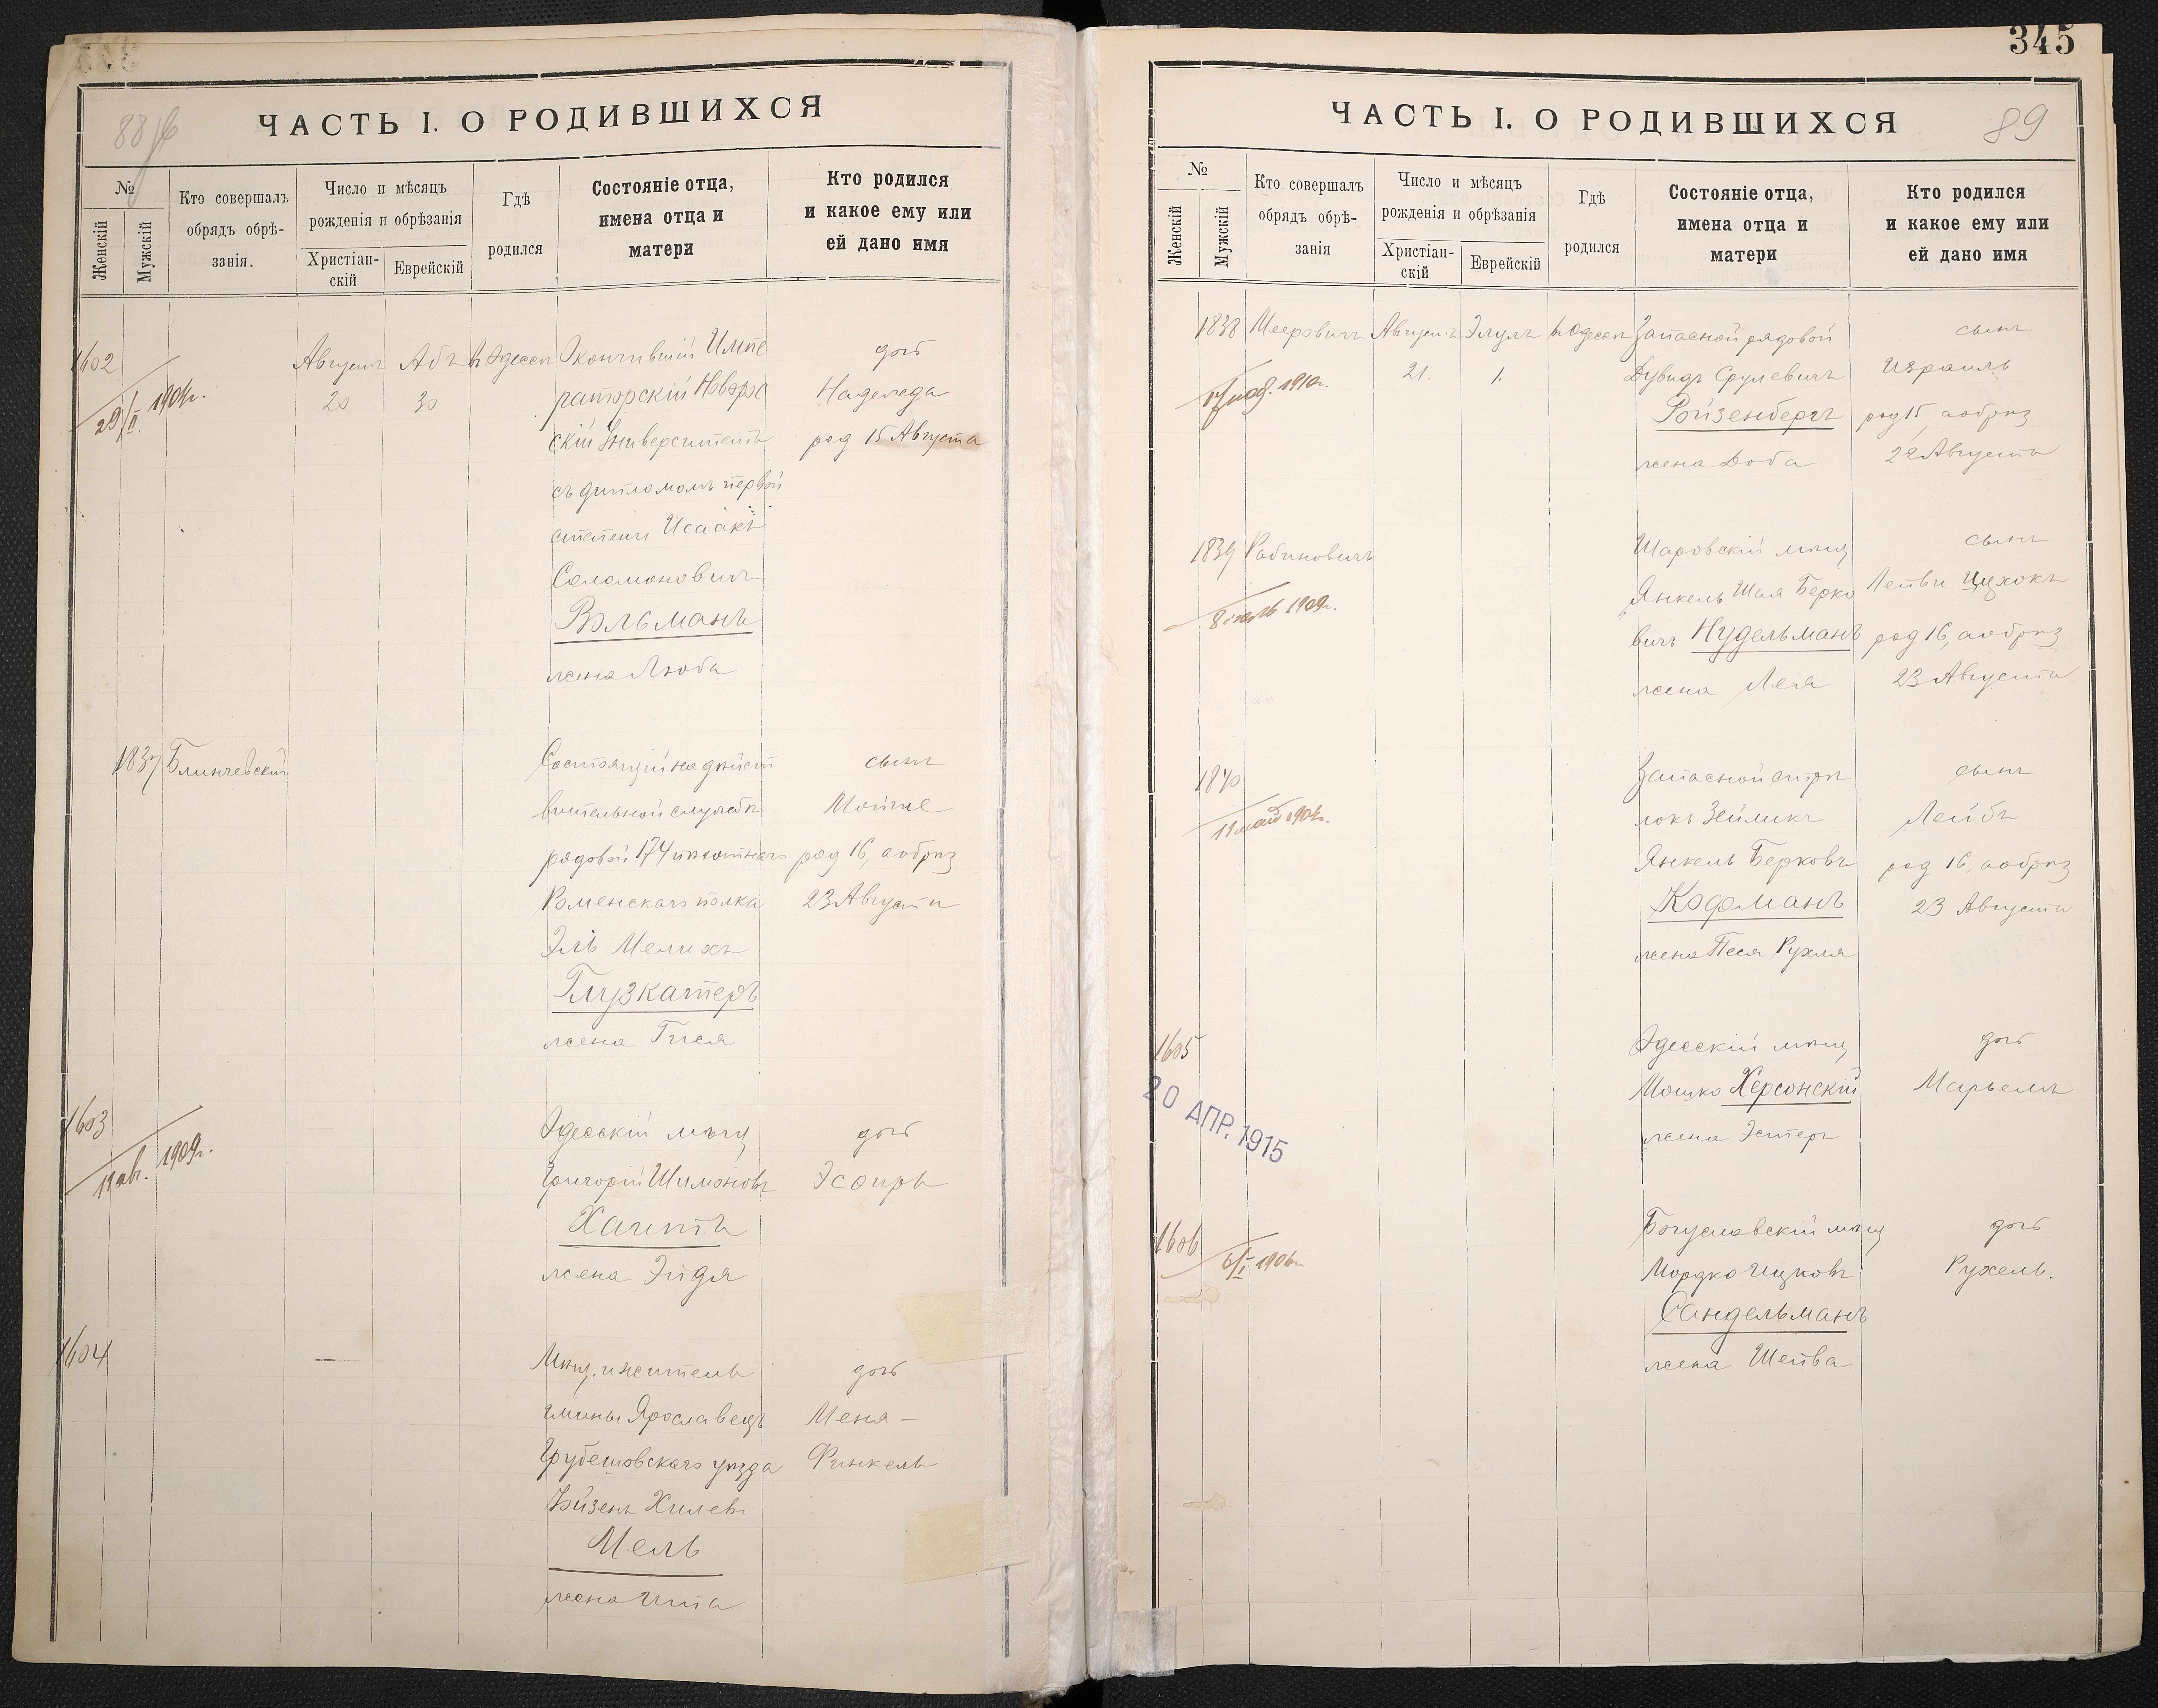 ЧАСТЬ I. О РОДИВШИХСЯ
№
Женскій
Мужскій
Кто совершалъ
обрядъ обрѣ-
занія.
Число и мѣсяцъ
рожденія и обрѣзанія
Христіан-
скій
Еврейскій
Гдѣ
родился
Состояніе отца,
имена отца и
матери
Кто родился
и какое ему или
ей дано имя
1602
29/II 1904г.
Августъ
20
Абъ
30
въ Одессѣ
Окончившій Импе
раторскій Новорос
скій Университетъ
съ дипломомъ первой
степени Исаакъ
Соломоновичъ
Рольманъ
жена Люба
дочь
Надежда
род 15 Августа
1837
Блинчевскій
Состоящій на дѣйст
вительной службѣ
рядовой 174 пѣхотнаго
Роменскаго полка
Эль Мелихъ
Глузкатеръ
жена Гися
сынъ
Мойше
род 16, а обрѣз
23 Августа
1603
11 ав. 1909г.
Одесскій мѣщ
Григорій Шимоновъ
Хаитъ
жена Эйдя
дочь
Эсѳирь
1604
Мѣщ. и житель
гмины Ярославецъ
Грубешовскаго уѣзда
Хилевъ
Мель
жена Ита
дочь
Меня –
Финкель
345
ЧАСТЬ I. О РОДИВШИХСЯ
89
№
Женскій
Мужскій
Кто совершалъ
обрядъ обрѣ-
занія
Число и мѣсяцъ
рожденія и обрѣзанія
Христіан-
скій
Еврейскій
Гдѣ
родился
Состояніе отца,
имена отца и
матери
Кто родился
и какое ему или
ей дано имя
1838
1910г.
Мееровичъ
Августъ
21.
Элулъ
1.
въ Одессѣ
Запасной рядовой
Дувидъ Срулевичъ
Ройзенбергъ
жена Доба
сынъ
Израиль
род 15, а обрѣз
22 Августа
1839
1909г.
Рабиновичъ
Шаровскій мѣщ
Янкель Шая Берко
вичъ Нудельманъ
жена Лея
сынъ
Лейви Цухокъ
род 16, а обрѣз
23 Августа
1840
11 май
Запасной стрѣ
локъ Зейликъ
Янкель Берковъ
Кофманъ
жена Песя Рухля
сынъ
Лейбъ
род 16, а обрѣз
23 Августа
1605
20 АПР. 1915
Одесскій мѣщ
Мошко Херсонскій
жена Эстеръ
дочь
Марьемъ
1606
6/I 1906г.
Богуславскій мѣщ
Мордко Ицковъ
Сандельманъ
жена Шейва
дочь
Рухель.